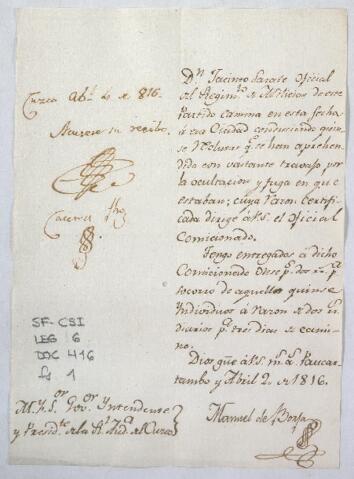 Cuzco Abl. 4 de 816.
Acusese su recibo
Dn. Jacinto Zarate Oficial
del Regimto. de Milicias de este
Partido camina en esta fecha
á esa Ciudad conduciendo quin-
se Reclutas q. se han aprehen-
dido con vastante travajo por
la ocultacion y fuga en que
estaban; cuya razon certifi-
cada dirige á V.S. el Oficial
Comicionado.
Tengo entregados á dicho
Comicionado onse ps. dos rs. pa.
socorro de aquellos quinse
Individuos á razon de dos rs.
diarios pr. tres dias de cami-
no.
Dios gũe á V.S. ms. as. Paucar-
tambo y Abril 2 de 1816.
Manuel de Borja
SF-CSI
LEG 6
DOC 416
fs 1
M. Y. S. Govor. Yntendente
y Presidte. de la Rl. Auda. del Cuzco